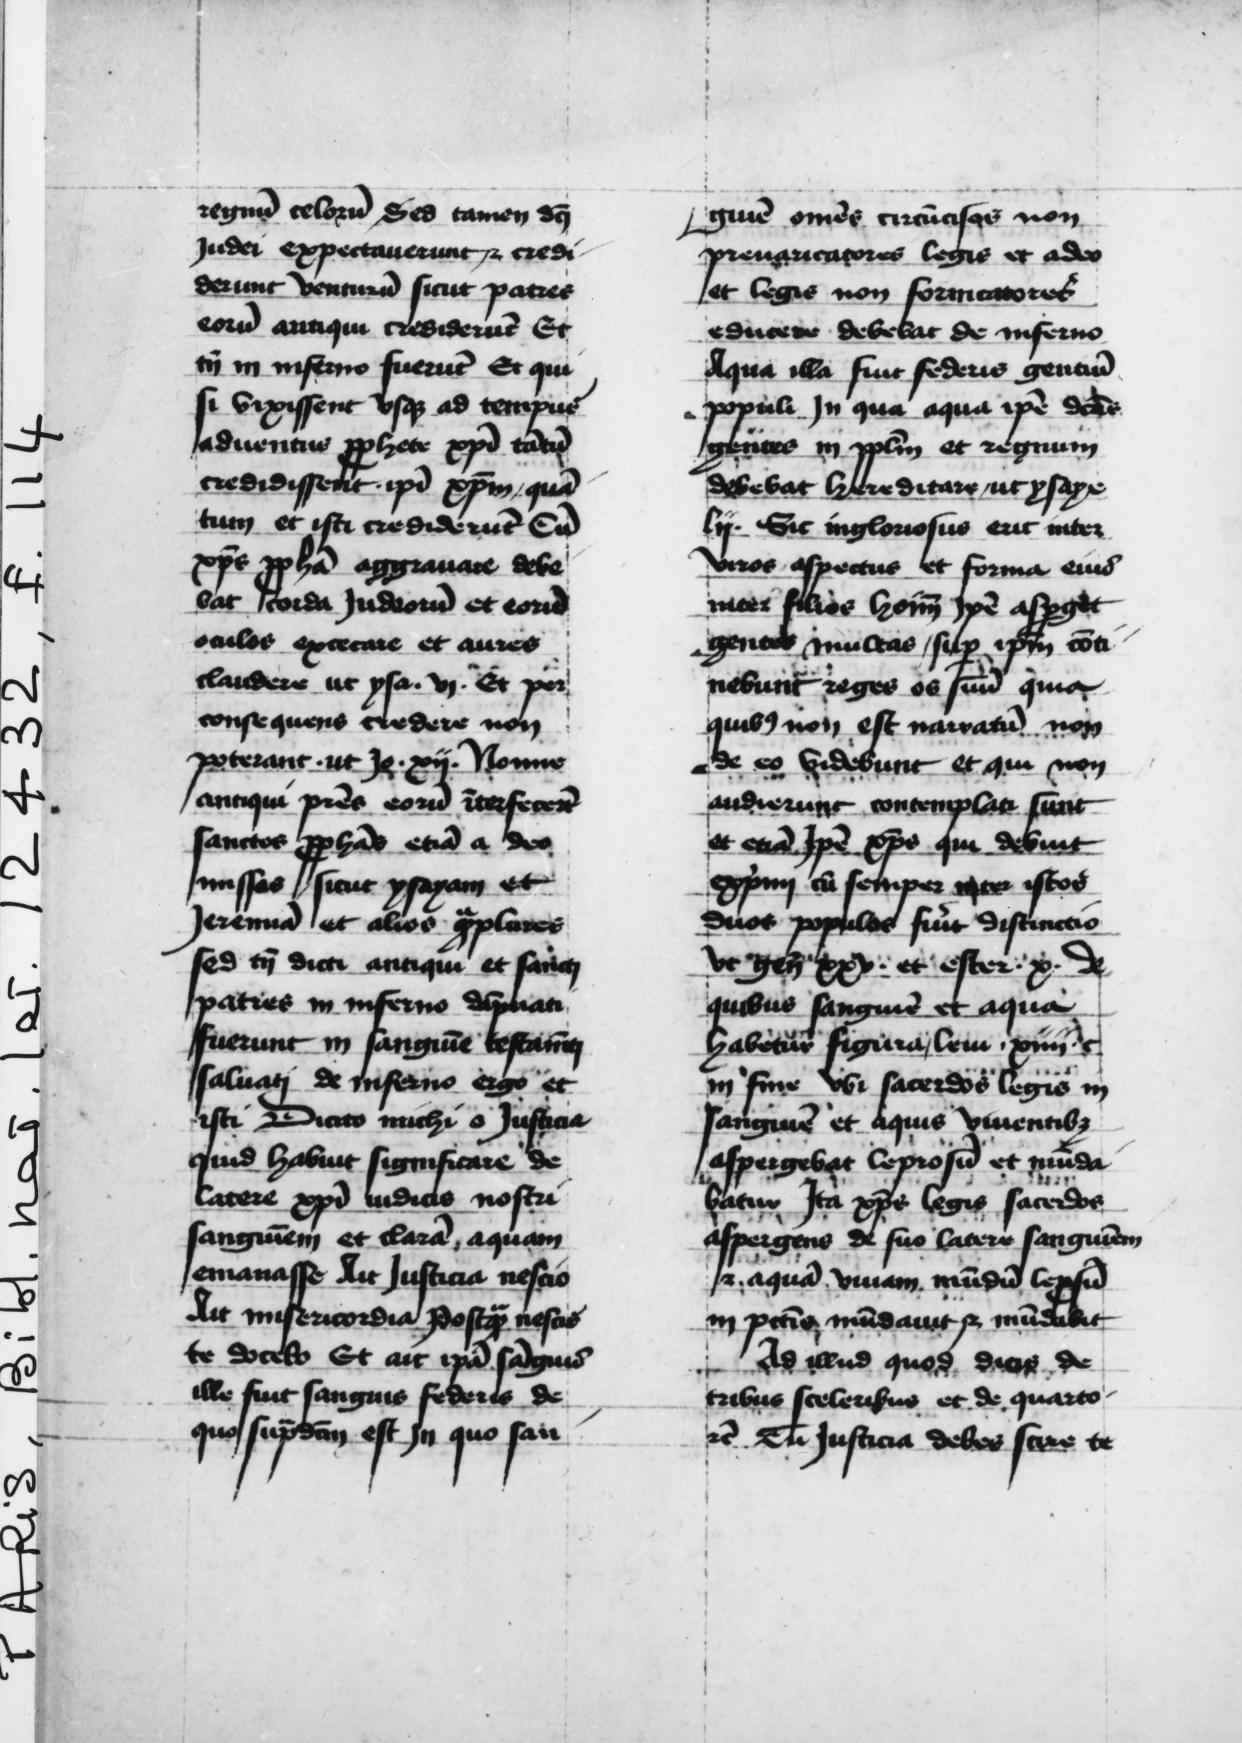 regnū celorū Sed tamen dc̄i
Judei expectauerunt ⁊ credi
derunt venturū sicut patres
eorū antiqui crediderūt Et
tn̄ in inferno fuerūt Et qui
si vixissent vsqꝫ ad tempus
aduentus ꝓphete xpī tātū
credidissent ipī xp̄m quā
tum et isti crediderūt Cū
xp̄s ꝓphā aggrauare debe
bat corda Judeorū et eorū
oculos excecare et aures
claudere ut ysa. vj. Et per
consequens credere non
poterant. ut Jo. xij. Nonne
antiqui prēs eorū īterfecerūt
sanctos ꝓphās etiā a deo
missos sicut ysayam et
Jeremiā et alios qᵃplures
sed tn̄ dicti antiqui et sancti
patres in inferno dāpnati
fuerunt in sanguīe testamēti
saluati de inferno ergo et
isti Dicito michi o Justicia
quid habuit significare de
latere xpī iudicis nostri
sanguinem et clarā aquam
emanasse Ait Justicia nescio
Ait misericordia Postqᵃ nescis
te docebo Et ait ipā sāguis
ille fuit sanguis federis de
quo sup̄dcm̄ est In quo san
guīe omēs circūcisos non
preuaricatores legis et adeo
et legis non fornicatores
educere debebat de inferno
Aqua illa fuit federis gentiū
populi In qua aqua ipē
gentes in pplm̄ et regnum
debebat hereditare ut ysaye
lij. Sic ingloriosus erit inter
viros aspectus et forma eius
inter filios hoīm Ipē asp̄get
gentes multas sup ipm̄ cōti
nebunt reges os suū quia
quibꝰ non est narratū non
de eo videbunt et qui non
audierunt contemplati sunt
et etiā Ipē xp̄s qui debuit
exprimi cū semper inter istos
duos populos fuit distinctio
vt gen̄ xxv. et ester. x. de
quibus sanguīe et aqua
habetur figura leui. xiiii. c
in fine vbi sacerdos legis in
sanguīe et aquis viuentibꝫ
aspergebat leprosū et mūda
batur Ita xp̄s legis sacerdos
aspergens de suo latere sanguinem
⁊ aquā viuam mūdū leprosū
in pctīs mūdauit ⁊ mūdabit
Ad illud quod dicis de
tribus sceleribus et de quarto
⁊c̄ Tu Justicia debes scire te
PARIS, Bibl. nat. lat. 12432, f. 114